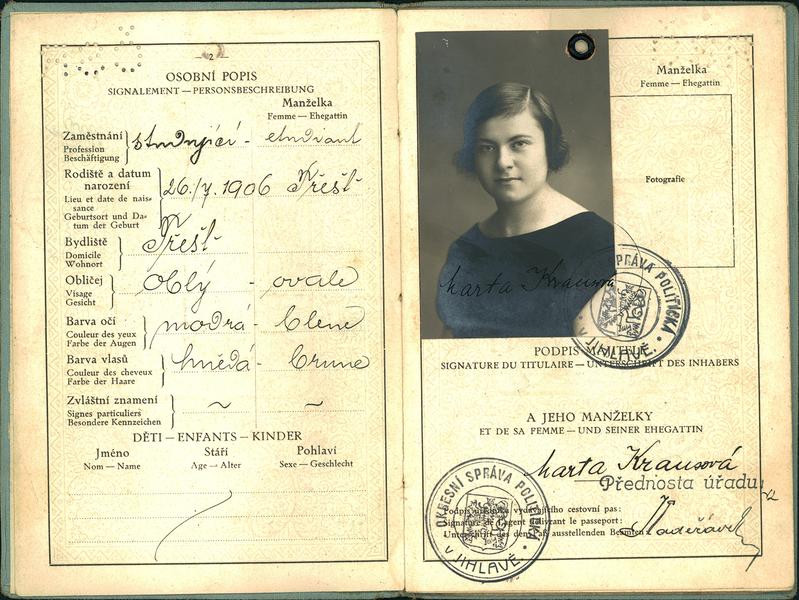 — 2 —
OSOBNÍ POPIS
SIGNALEMENT — PERSONSBESCHREIBUNG
Manželka
Femme — Ehegattin
Zaměstnání
Profession
Beschäftigung
studující - etudiant
Rodiště a datum
narození
Lieu et date de nais-
sance
Geburtsort und Da-
tum der Geburt
26./7. 1906 Třešť
Bydliště
Domicile
Wohnort
Třešť
Obličej
Visage
Gesicht
oblý - ovale
Barva očí
Couleur des yeux
Farbe der Augen
modrá - bleue
Barva vlasů
Couleur des cheveux
Farbe der Haare
hnědá - brune
Zvláštní znamení
Signes particuliers
Besondere Kennzeichen
~ ~
DĚTI — ENFANTS — KINDER
Jméno Stáří Pohlaví
Nom — Name Age — Alter Sexe — Geschlecht
Manželka
Femme — Ehegattin
Fotografie
Marta Krausová
SPRÁVA POLITICKÁ
V JIHLAVĚ
PODPIS
SIGNATURE DU TITULAIRE — UNTERSCHRIFT DES INHABERS
A JEHO MANŽELKY
ET DE SA FEMME — UND SEINER EHEGATTIN
Marta Krausová
Přednosta úřadu
OKRESNÍ SPRÁVA POLITICKÁ
V JIHLAVĚ
Podpis úředníka vydavšího cestovní pas:
Signature de l'agent délivrant le passeport:
Unterschrift des den Paß ausstellenden Beamten